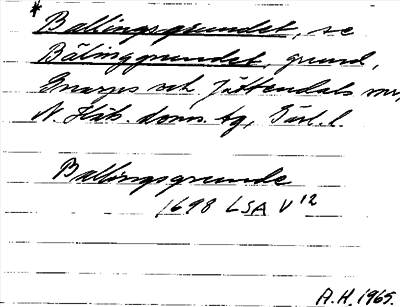 * Ballingsgrundet, se
Bålinggrundet, grund,
Gnarps och Jättendals snr,
N. Häls. doms. tg, Gävl. l.
Ballingsgrunde
1698 LSA V 12
A.H. 1965.